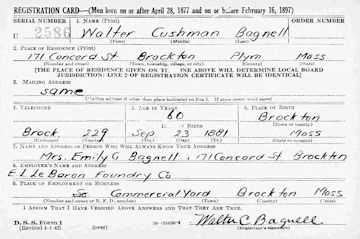 REGISTRATION CARD—(Men born on or after April 28, 1877 and on or before February 16, 1897)
SERIAL NUMBER 1. NAME (Print) ORDER NUMBER
U 2586 Walter Cushman Bagnell
(First) (Middle) (Last)
2. PLACE OF RESIDENCE (Print)
171 Concord St. Brockton Plym. Mass
(Number and street) (Town, township, village, or city) (County) (State)
[THE PLACE OF RESIDENCE GIVEN ON THE LINE ABOVE WILL DETERMINE LOCAL BOARD
JURISDICTION; LINE 2 OF REGISTRATION CERTIFICATE WILL BE IDENTICAL]
3. MAILING ADDRESS
same
[Mailing address if other than place indicated on line 2. If same insert word same]
4. TELEPHONE 5. AGE IN YEARS 6. PLACE OF BIRTH
60 Brockton
DATE OF BIRTH (Town or county)
Brock. 229 Sep 23 1881 Mass
(Exchange) (Number) (Mo.) (Day) (Yr.) (State or country)
7. NAME AND ADDRESS OF PERSON WHO WILL ALWAYS KNOW YOUR ADDRESS
Mrs. Emily G Bagnell, 171 Concord St Brockton
8. EMPLOYER'S NAME AND ADDRESS
E. L. Le Baron Foundry Co
9. PLACE OF EMPLOYMENT OR BUSINESS
Commercial Yard Brockton Mass
(Number and street or R. F. D. number) (Town) (County) (State)
I AFFIRM THAT I HAVE VERIFIED ABOVE ANSWERS AND THAT THEY ARE TRUE.
D. S. S. Form 1
(Revised 4-1-42) (over) Walter C Bagnell
(Registrant's signature)